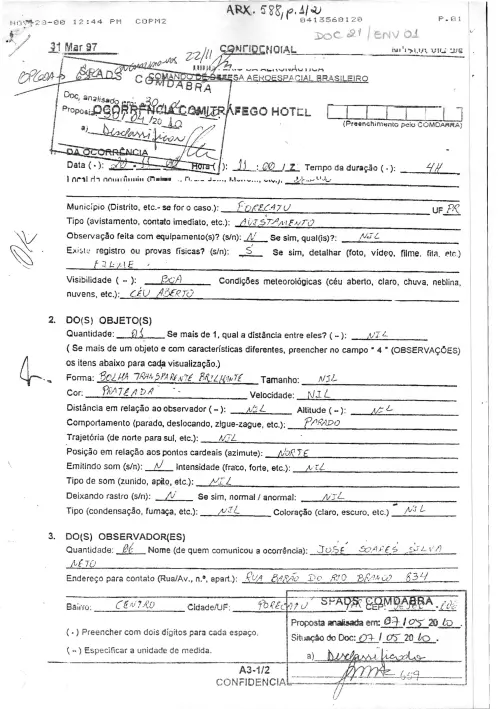 ARX. 588, p. 1/2
12:44 PM COPM2 0413560120 P.01
DOC 21 / ENV 01
31 Mar 97 CONFIDENCIAL
22/11
COMANDO DE DEFESA AEROESPACIAL BRASILEIRO
SPADS COMDABRA
Doc, analisado em:
Proposta 04/20 10
a) Desclassificar
OCORRÊNCIA COM TRÁFEGO HOTEL
(Preenchimento pelo COMDABRA)
DA OCORRÊNCIA
Data ( - ): 20. 11. 00 Hora ( ): 11 : 00 / Z Tempo da duração ( - ): 4H
Município (Distrito, etc.- se for o caso.): PORECATU UF PR
Tipo (avistamento, contato imediato, etc.): AVISTAMENTO
Observação feita com equipamento(s)? (s/n): N Se sim, qual(is)?: NIL
Existe registro ou provas físicas? (s/n): S Se sim, detalhar (foto, vídeo, filme, fita, etc.)
FILME
Visibilidade ( ~ ): BOA Condições meteorológicas (céu aberto, claro, chuva, neblina,
nuvens, etc.): CÉU ABERTO
OK
2. DO(S) OBJETO(S)
Quantidade: 01 Se mais de 1, qual a distância entre eles? ( ~ ): NIL
( Se mais de um objeto e com características diferentes, preencher no campo " 4 " (OBSERVAÇÕES)
os itens abaixo para cada visualização.)
Forma: BOLHA TRANSPARENTE BRILHANTE Tamanho: NIL
Cor: PRATEADA Velocidade: NIL
Distância em relação ao observador ( ~ ): NIL Altitude ( ~ ): NIL
Comportamento (parado, deslocando, zigue-zague, etc.): PARADO
Trajetória (de norte para sul, etc.): NIL
Posição em relação aos pontos cardeais (azimute): NORTE
Emitindo som (s/n): N Intensidade (fraco, forte, etc.): NIL
Tipo de som (zunido, apito, etc.): NIL
Deixando rastro (s/n): N Se sim, normal / anormal: NIL
Tipo (condensação, fumaça, etc.): NIL Coloração (claro, escuro, etc.) NIL
3. DO(S) OBSERVADOR(ES)
Quantidade: Nome (de quem comunicou a ocorrência): JOSÉ SOARES SILVA
NETO
Endereço para contato (Rua/Av., n.º, apart.): RUA BARÃO DO RIO BRANCO 834
Bairro: CENTRO Cidade/UF: PORECATU PR CEP:
SPADS COMDABRA
Proposta analisada em: 07 / 05 20 10.
( - ) Preencher com dois dígitos para cada espaço.
Situação do Doc: 07 / 05 20 10.
( ~ ) Especificar a unidade de medida.
a) Desclassificado
A3-1/2
CONFIDENCIAL